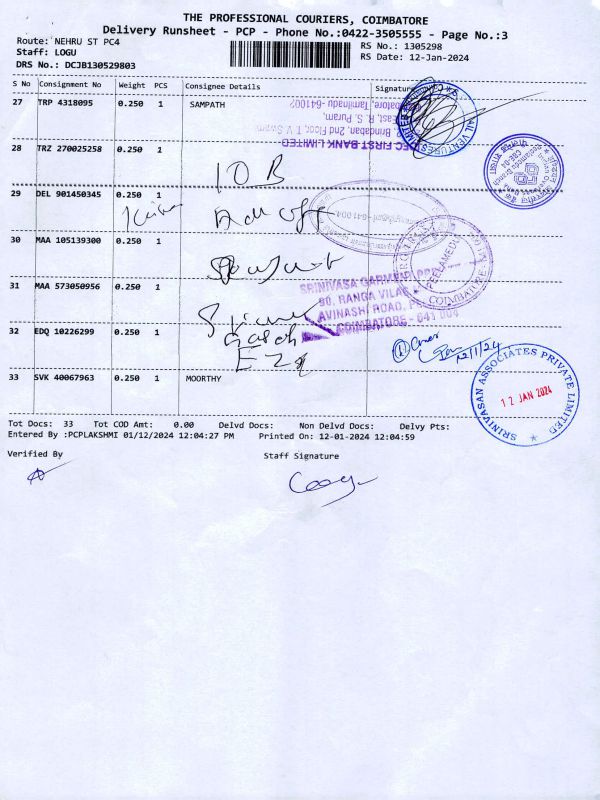 THE PROFESSIONAL COURIERS, COIMBATORE
Delivery Runsheet - PCP - Phone No.:0422-3505555 - Page No.:3
Route: NEHRU ST PC4
RS No.: 1305298
Staff: LOGU
RS Date: 12-Jan-2024
DRS No.: DCJB130529803
S No Consignment No Weight PCS Consignee Details Signature
27 TRP 4318095 0.250 1 SAMPATH
28 TRZ 270025258 0.250 1
IOB
29 DEL 901450345 0.250 1
30 MAA 105139300 0.250 1
31 MAA 573050956 0.250 1
32 EDQ 10226299 0.250 1
33 SVK 40067963 0.250 1 MOORTHY
FIRST BANK LIMITED
2nd Floor, T.V Swamy
East, R. S. Puram,
Tamilnadu-641002
VENTURES
PEELAMEDU
COIMBATORE
SRINIVASA GARMENT
90, RANGA VILAS
AVINASHI ROAD,
COIMBATORE - 641 004
12/1/24
SRINIVASAN ASSOCIATES PRIVATE LIMITED
12 JAN 2024
Tot Docs: 33 Tot COD Amt: 0.00 Delvd Docs: Non Delvd Docs: Delvy Pts:
Entered By :PCPLAKSHMI 01/12/2024 12:04:27 PM Printed On: 12-01-2024 12:04:59
Verified By Staff Signature